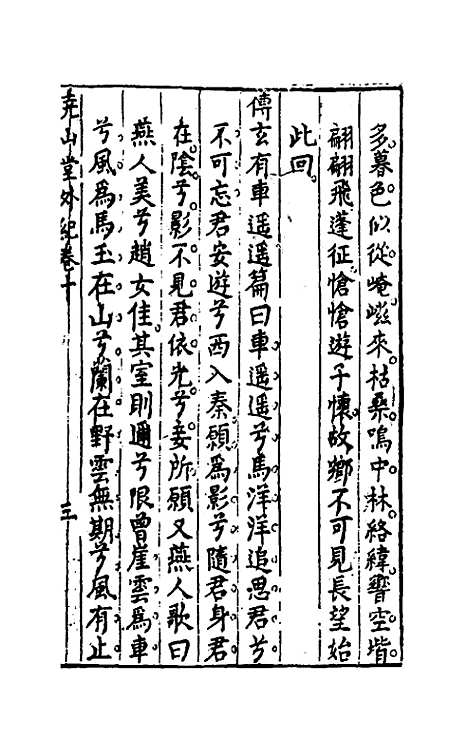 多暮色似從崦嵫來枯桑鳴中林絡緯響空堦
翩翩飛蓬征愴愴遊子懷故鄉不可見長望始
此回
傅玄有車遥遥篇曰車遥遥兮馬洋洋追思君兮
不可忘君安遊兮西入秦願爲影兮隨君身君
在陰兮影不見君依光兮妾所願又燕人歌曰
燕人美兮趙女佳其室則邇兮限曾崖雲爲車
兮風爲馬玉在山兮蘭在野雲無期兮風有止
堯山堂外紀卷十
三